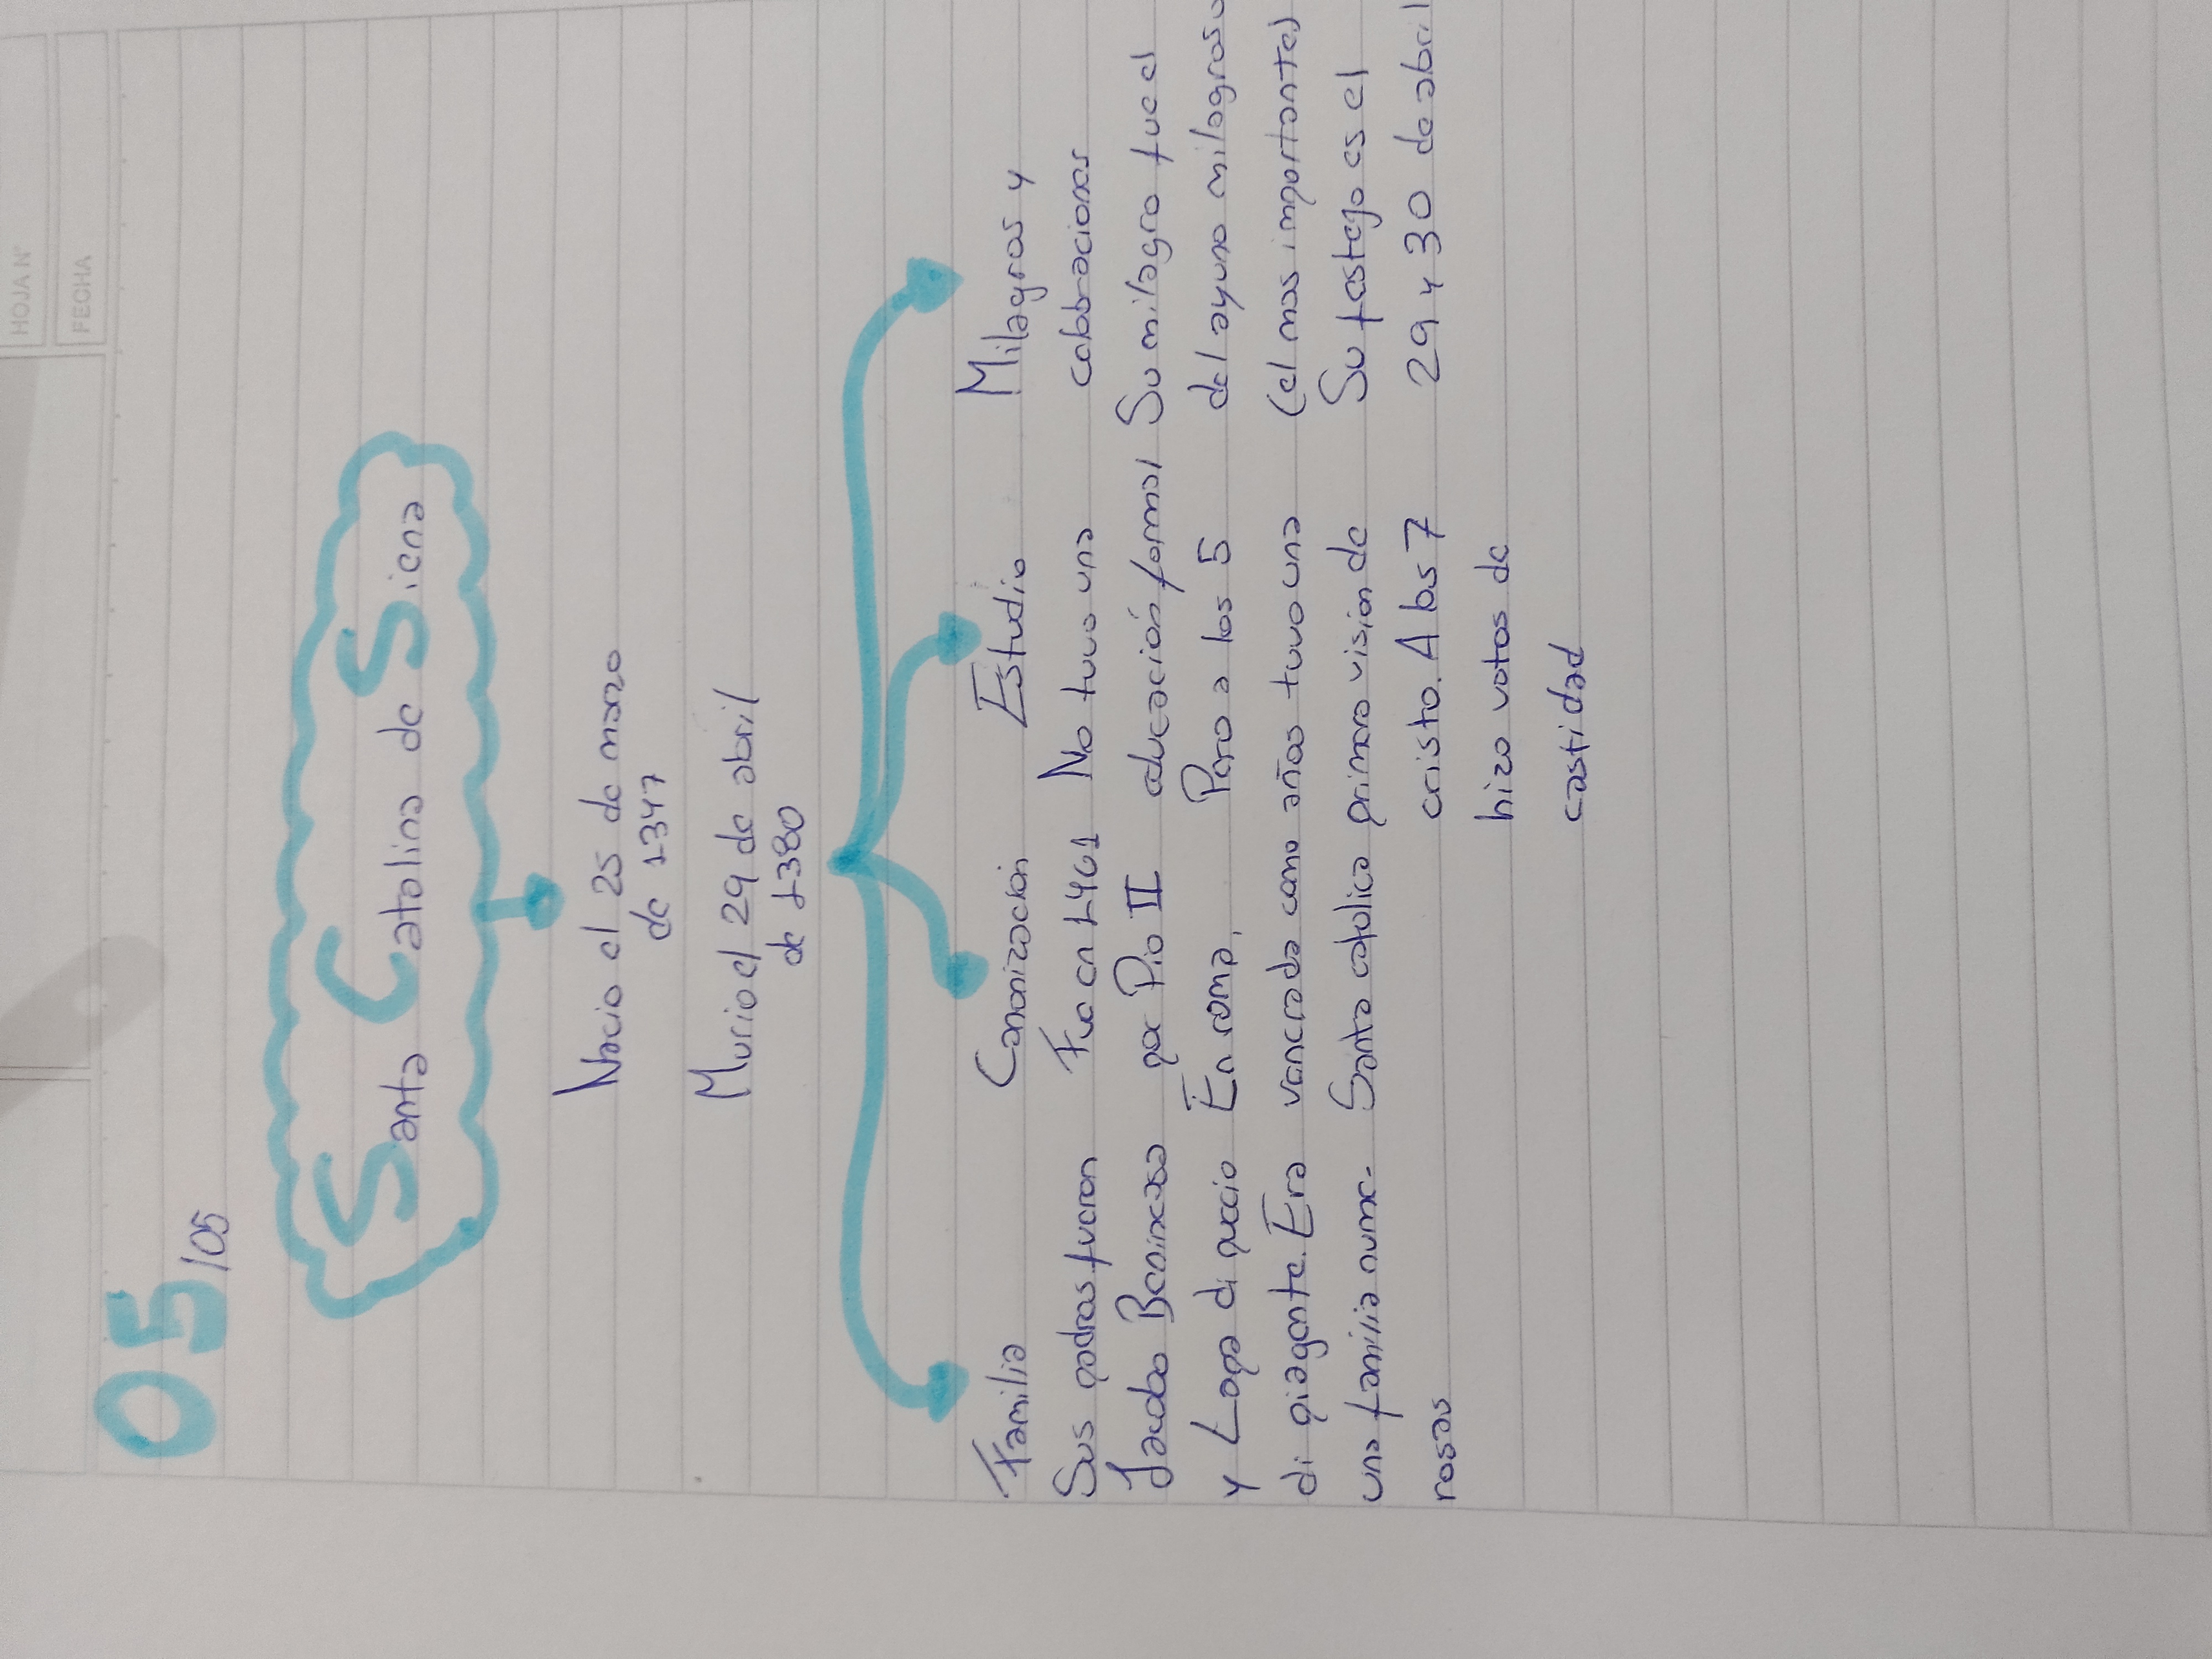 HOJA N°
FECHA
05/05
Santa Catalina de Siena
Nacio el 25 de marzo
de 1347
Murio el 29 de abril
de 1380
Familia
Sus padres fueron
Jacobo Benincasa
y Lapa di puccio
di piagente. Era
una familia nume-
rosas
Canonización
Fue en 1461
por Pio II
En roma,
venerada como
Santa catolica
Estudio
No tuvo una
educación formal
Pero a los 5
años tuvo una
primera vision de
cristo. A los 7
hizo votos de
castidad
Milagros y
celebraciones
Su milagro fue el
del ayuno milagroso
(el mas importante)
Su festejo es el
29 y 30 de abril